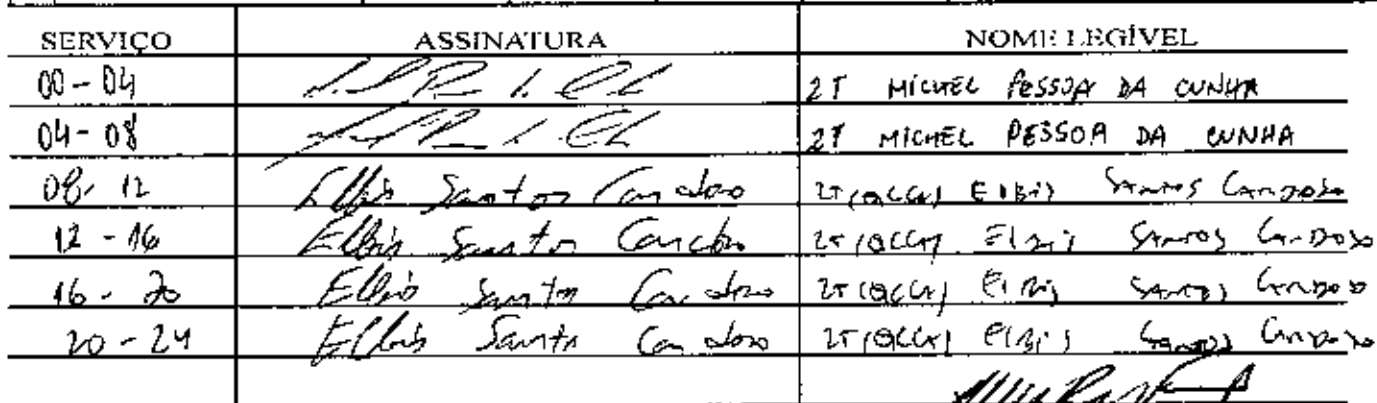 SERVIÇO ASSINATURA NOME LEGÍVEL
00 - 04 2T MICHEL PESSOA DA CUNHA
04 - 08 2T MICHEL PESSOA DA CUNHA
08 - 12 Elbis Santos Cardoso 2T Elbis Santos Cardoso
12 - 16 Elbis Santos Cardoso 2T Elbis Santos Cardoso
16 - 20 Elbis Santos Cardoso 2T Elbis Santos Cardoso
20 - 24 Elbis Santos Cardoso 2T Elbis Santos Cardoso